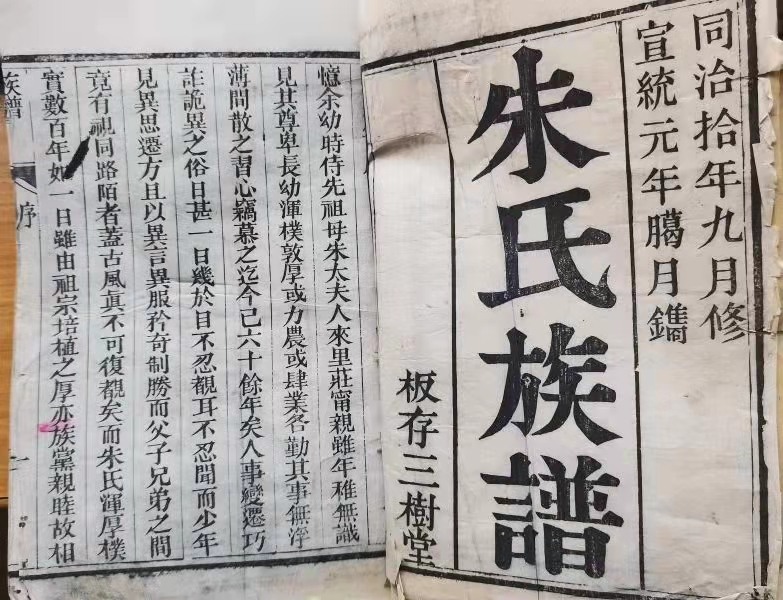 同治拾年九月修
宣統元年臈月鐫
朱氏族譜
板存三樹堂
憶余幼時侍先祖母朱太夫人來里莊甯親雖年稚無識
見其尊卑長幼渾樸敦厚或力農或肆業各勤其事無浮
薄間散之習心竊慕之迄今已六十餘年矣人事變遷巧
詐詭異之俗日甚一日幾於目不忍覩耳不忍聞而少年
見異思遷方且以異言異服矜奇制勝而父子兄弟之間
竟有視同路陌者蓋古風眞不可復覩矣而朱氏渾厚樸
實數百年如一日雖由祖宗培植之厚亦族黨親睦故相
族譜
序
一